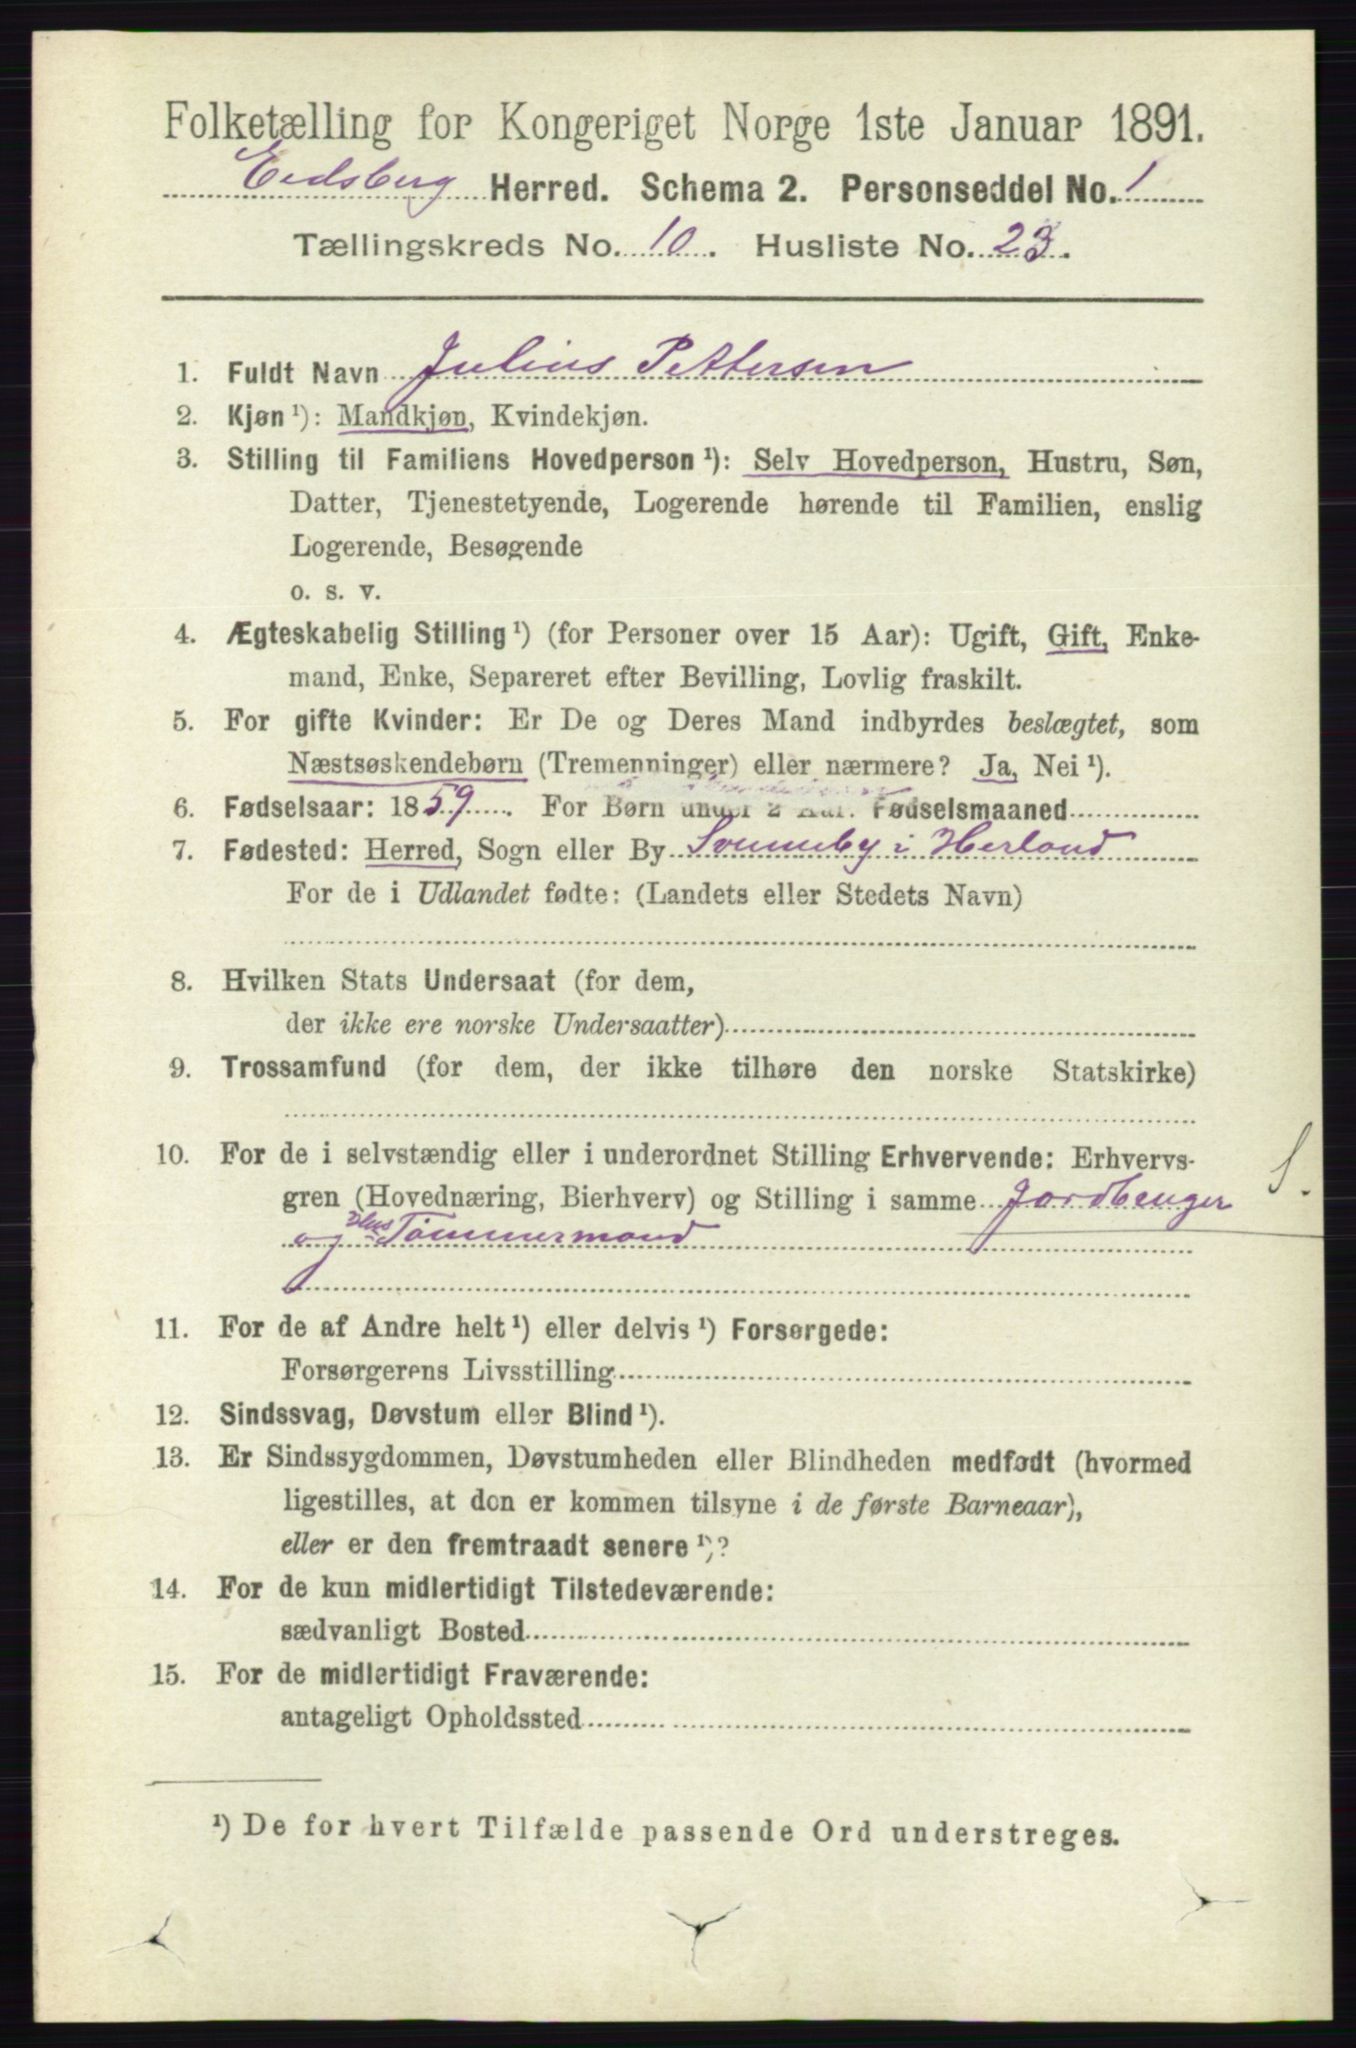 Folketælling for Kongeriget Norge 1ste Januar 1891.
Eidsberg Herred. Schema 2. Personseddel No. 1
Tællingskreds No. 10. Husliste No. 23.
1. Fuldt Navn Julius Pettersen
2. Kjøn ¹): Mandkjøn, Kvindekjøn.
3. Stilling til Familiens Hovedperson ¹): Selv Hovedperson, Hustru, Søn,
Datter, Tjenestetyende, Logerende hørende til Familien, enslig
Logerende, Besøgende
o. s. v.
4. Ægteskabelig Stilling ¹) (for Personer over 15 Aar): Ugift, Gift, Enke-
mand, Enke, Separeret efter Bevilling, Lovlig fraskilt.
5. For gifte Kvinder: Er De og Deres Mand indbyrdes beslægtet, som
Næstsøskendebørn (Tremenninger) eller nærmere? Ja, Nei ¹).
6. Fødselsaar: 1859. For Børn under 2 Aar. Fødselsmaaned
7. Fødested: Herred, Sogn eller By Svenneby i Herland
For de i Udlandet fødte: (Landets eller Stedets Navn)
8. Hvilken Stats Undersaat (for dem,
der ikke ere norske Undersaatter)
9. Trossamfund (for dem, der ikke tilhøre den norske Statskirke)
10. For de i selvstændig eller i underordnet Stilling Erhvervende: Erhvervs-
gren (Hovednæring, Bierhverv) og Stilling i samme Jordbruger S.
og Hus Tømmermand
11. For de af Andre helt ¹) eller delvis ¹) Forsørgede:
Forsørgerens Livsstilling
12. Sindssvag, Døvstum eller Blind ¹).
13. Er Sindssygdommen, Døvstumheden eller Blindheden medfødt (hvormed
ligestilles, at den er kommen tilsyne i de første Barneaar),
eller er den fremtraadt senere ¹)?
14. For de kun midlertidigt Tilstedeværende:
sædvanligt Bosted
15. For de midlertidigt Fraværende:
antageligt Opholdssted
¹) De for hvert Tilfælde passende Ord understreges.